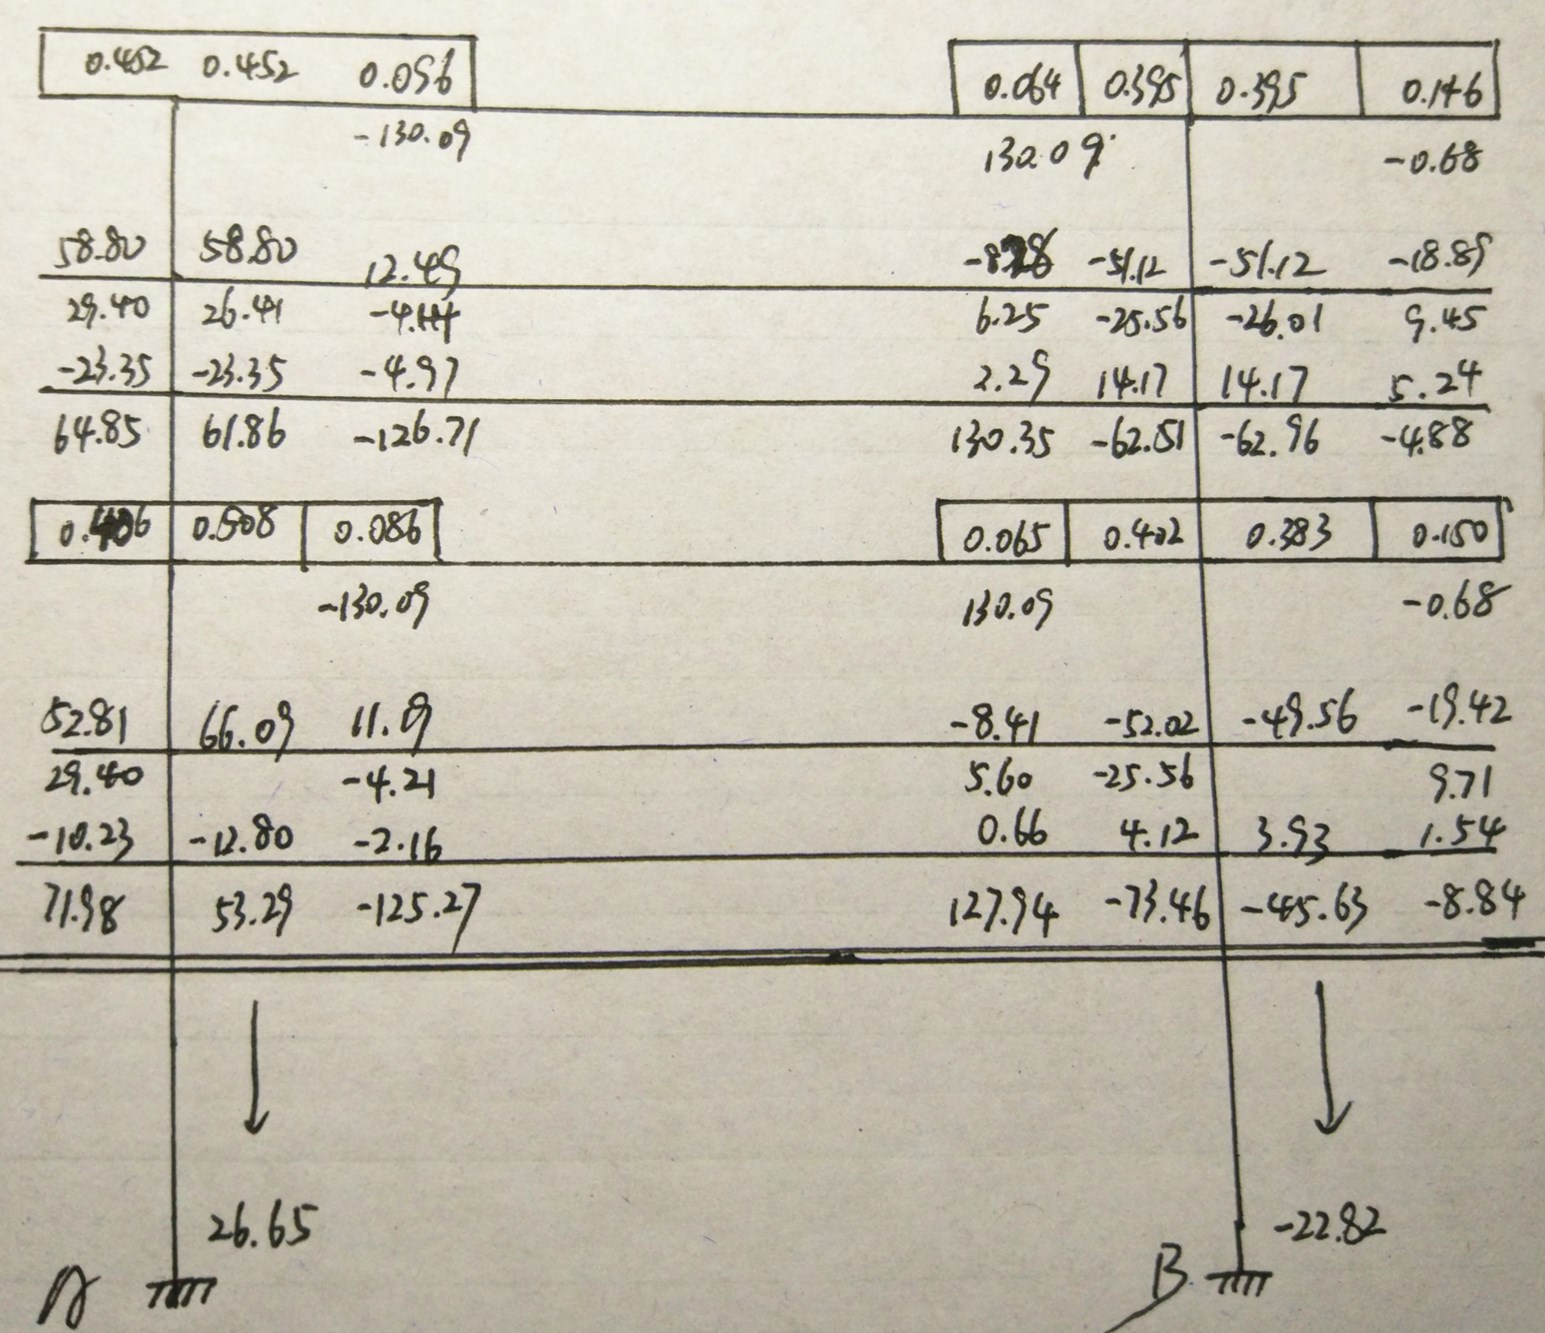 0.452 0.452 0.096 0.064 0.395 0.395 0.146
-130.09 130.09 -0.68
58.80 58.80 12.49 -51.12 -51.12 -18.89
29.40 26.41 6.25 -25.56 -26.01 9.45
-23.35 -23.35 -4.97 2.29 14.17 14.17 5.24
64.85 61.86 -126.71 130.35 -62.51 -62.96 -4.88
0.406 0.508 0.086 0.065 0.402 0.383 0.150
-130.09 130.09 -0.68
52.81 66.09 11.19 -8.41 -52.02 -49.56 -19.42
29.40 -4.21 5.60 -25.56 9.71
-10.23 -12.80 -2.16 0.66 4.12 3.93 1.54
71.98 53.29 -125.27 127.94 -73.46 -45.63 -8.84
26.65 -22.82
A B